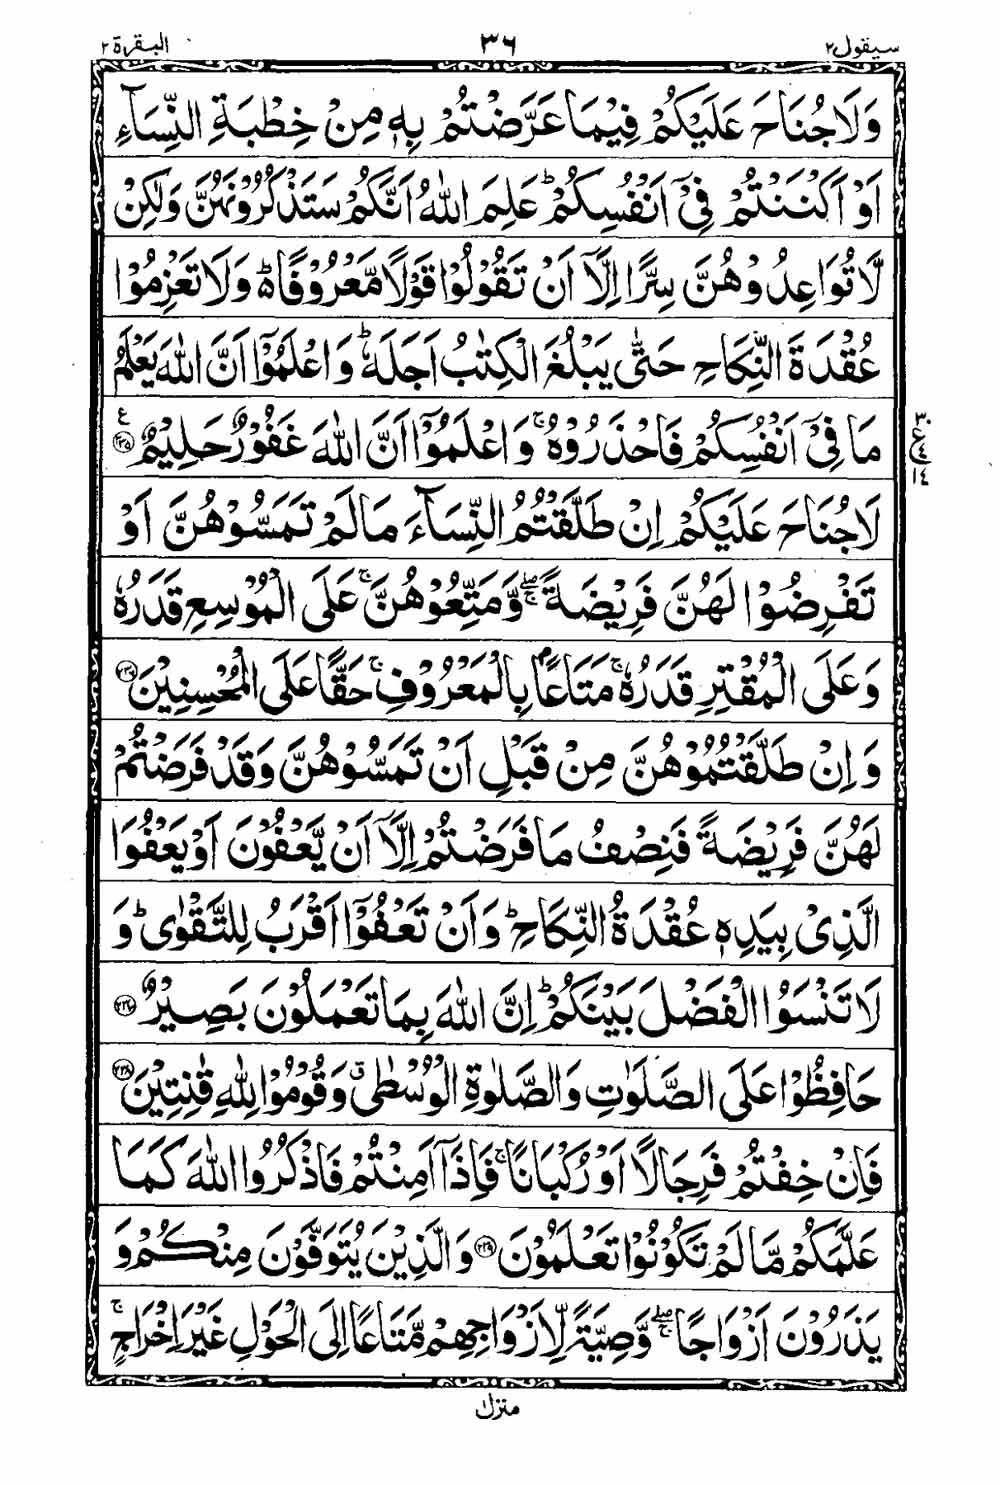 سيقول ٢ ٣٦ البقرة ٢
وَلَا جُنَاحَ عَلَيْكُمْ فِيْمَا عَرَّضْتُمْ بِهٖ مِنْ خِطْبَةِ النِّسَآءِ
اَوْ اَكْنَنْتُمْ فِىْٓ اَنْفُسِكُمْ ؕ عَلِمَ اللّٰهُ اَنَّكُمْ سَتَذْكُرُوْنَهُنَّ وَلٰكِنْ
لَّا تُوَاعِدُوْهُنَّ سِرًّا اِلَّآ اَنْ تَقُوْلُوْا قَوْلًا مَّعْرُوْفًا ؕ وَلَا تَعْزِمُوْا
عُقْدَةَ النِّكَاحِ حَتّٰى يَبْلُغَ الْكِتٰبُ اَجَلَهٗ ؕ وَاعْلَمُوْٓا اَنَّ اللّٰهَ يَعْلَمُ
مَا فِىْٓ اَنْفُسِكُمْ فَاحْذَرُوْهُ ۚ وَاعْلَمُوْٓا اَنَّ اللّٰهَ غَفُوْرٌ حَلِيْمٌ ﴿٢٣٥﴾ ع
٣٠ ع ١٤
لَا جُنَاحَ عَلَيْكُمْ اِنْ طَلَّقْتُمُ النِّسَآءَ مَا لَمْ تَمَسُّوْهُنَّ اَوْ
تَفْرِضُوْا لَهُنَّ فَرِيْضَةً ۖۚ وَّمَتِّعُوْهُنَّ ۚ عَلَى الْمُوْسِعِ قَدَرُهٗ
وَعَلَى الْمُقْتِرِ قَدَرُهٗ ۚ مَتَاعًاۢ بِالْمَعْرُوْفِ ۚ حَقًّا عَلَى الْمُحْسِنِيْنَ ﴿٢٣٦﴾
وَاِنْ طَلَّقْتُمُوْهُنَّ مِنْ قَبْلِ اَنْ تَمَسُّوْهُنَّ وَقَدْ فَرَضْتُمْ
لَهُنَّ فَرِيْضَةً فَنِصْفُ مَا فَرَضْتُمْ اِلَّآ اَنْ يَّعْفُوْنَ اَوْ يَعْفُوَا
الَّذِىْ بِيَدِهٖ عُقْدَةُ النِّكَاحِ ؕ وَاَنْ تَعْفُوْٓا اَقْرَبُ لِلتَّقْوٰى ؕ وَ
لَا تَنْسَوُا الْفَضْلَ بَيْنَكُمْ ؕ اِنَّ اللّٰهَ بِمَا تَعْمَلُوْنَ بَصِيْرٌ ﴿٢٣٧﴾
حَافِظُوْا عَلَى الصَّلَوٰتِ وَالصَّلٰوةِ الْوُسْطٰى ۗ وَقُوْمُوْا لِلّٰهِ قٰنِتِيْنَ ﴿٢٣٨﴾
فَاِنْ خِفْتُمْ فَرِجَالًا اَوْ رُكْبَانًا ۚ فَاِذَآ اَمِنْتُمْ فَاذْكُرُوا اللّٰهَ كَمَا
عَلَّمَكُمْ مَّا لَمْ تَكُوْنُوْا تَعْلَمُوْنَ ﴿٢٣٩﴾ وَالَّذِيْنَ يُتَوَفَّوْنَ مِنْكُمْ وَ
يَذَرُوْنَ اَزْوَاجًا ۖۚ وَّصِيَّةً لِّاَزْوَاجِهِمْ مَّتَاعًا اِلَى الْحَوْلِ غَيْرَ اِخْرَاجٍ ۚ
منزل